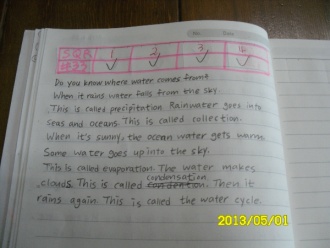 No.
Date
1 2 3 4
Do you know where water comes from?
When it rains, water falls from the sky.
This is called precipitation. Rainwater goes into
seas and oceans. This is called collection.
When it's sunny, the ocean water gets warm.
Some water goes up into the sky.
This is called evaporation. The water makes
condensation
clouds. This is called. Then it
rains again. This is called the water cycle.
2013/05/01